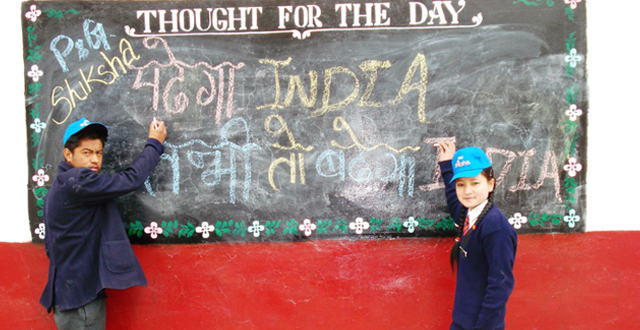 THOUGHT FOR THE DAY
P&G
Shiksha
पढेगा INDIA
तो बढेगा INDIA